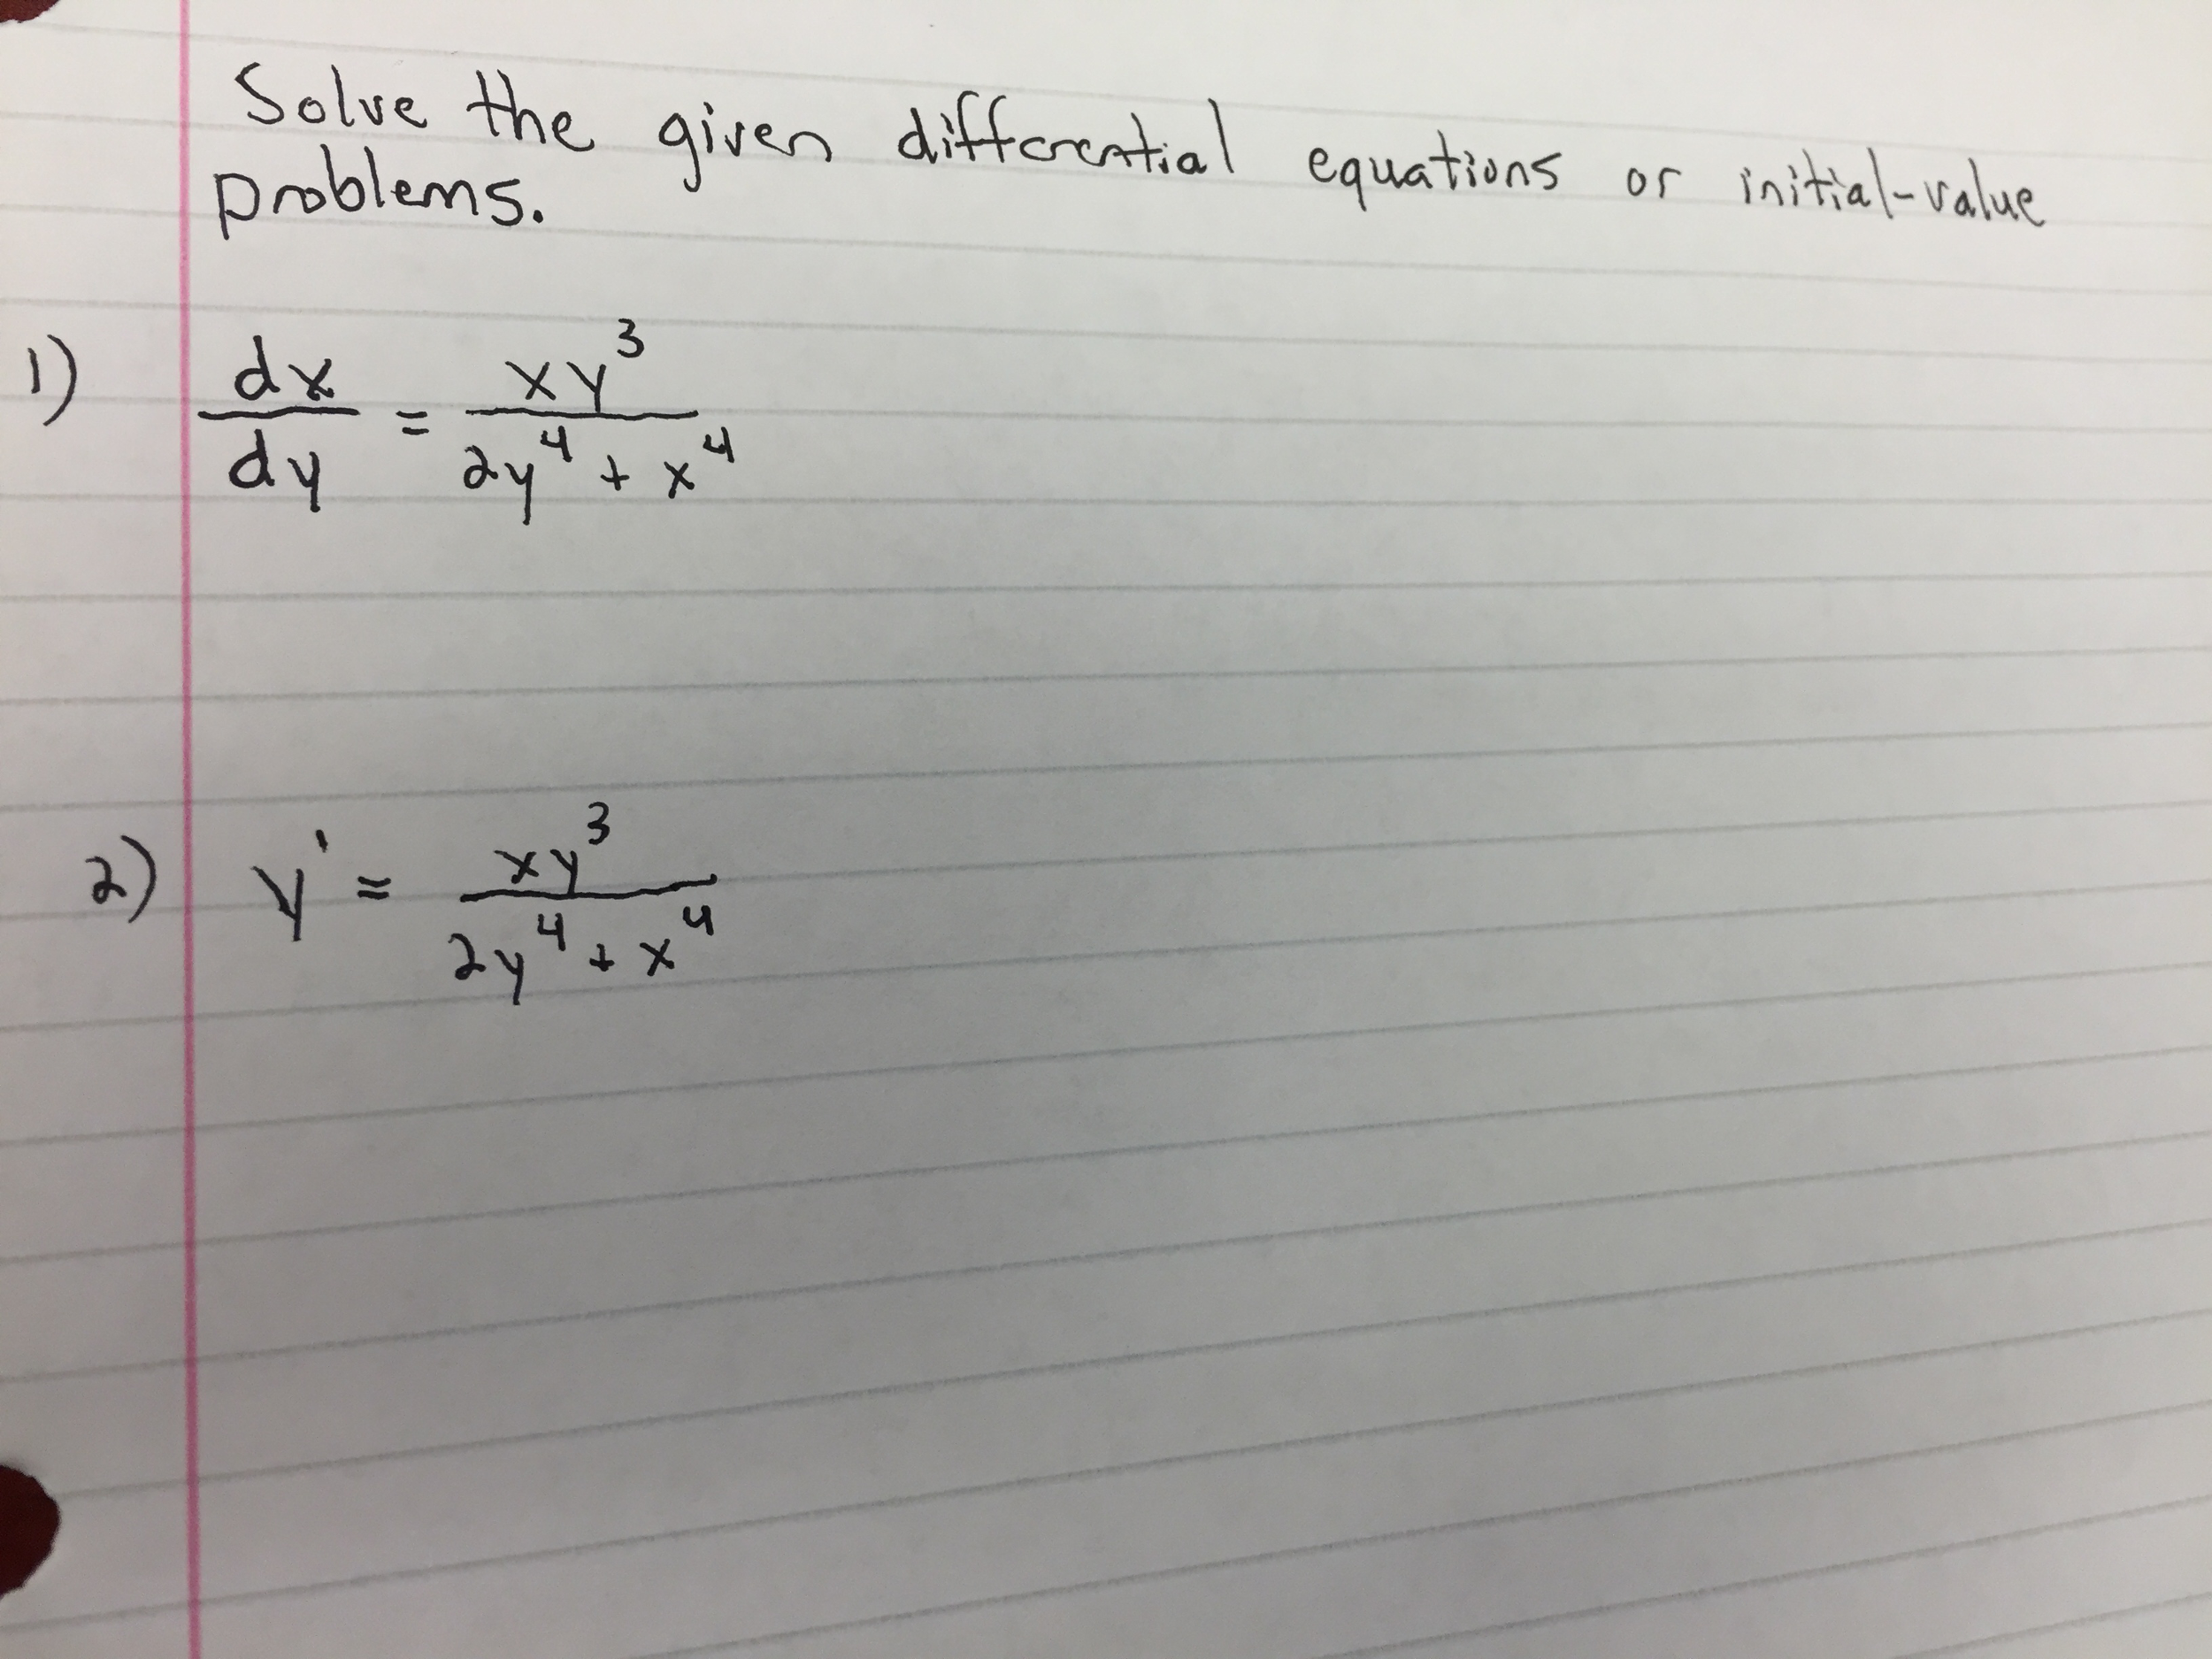 Solve the given differential equations or initial-value
problems.
1) dx/dy = xy³/(2y⁴ + x⁴)
2) y' = xy³/(2y⁴ + x⁴)